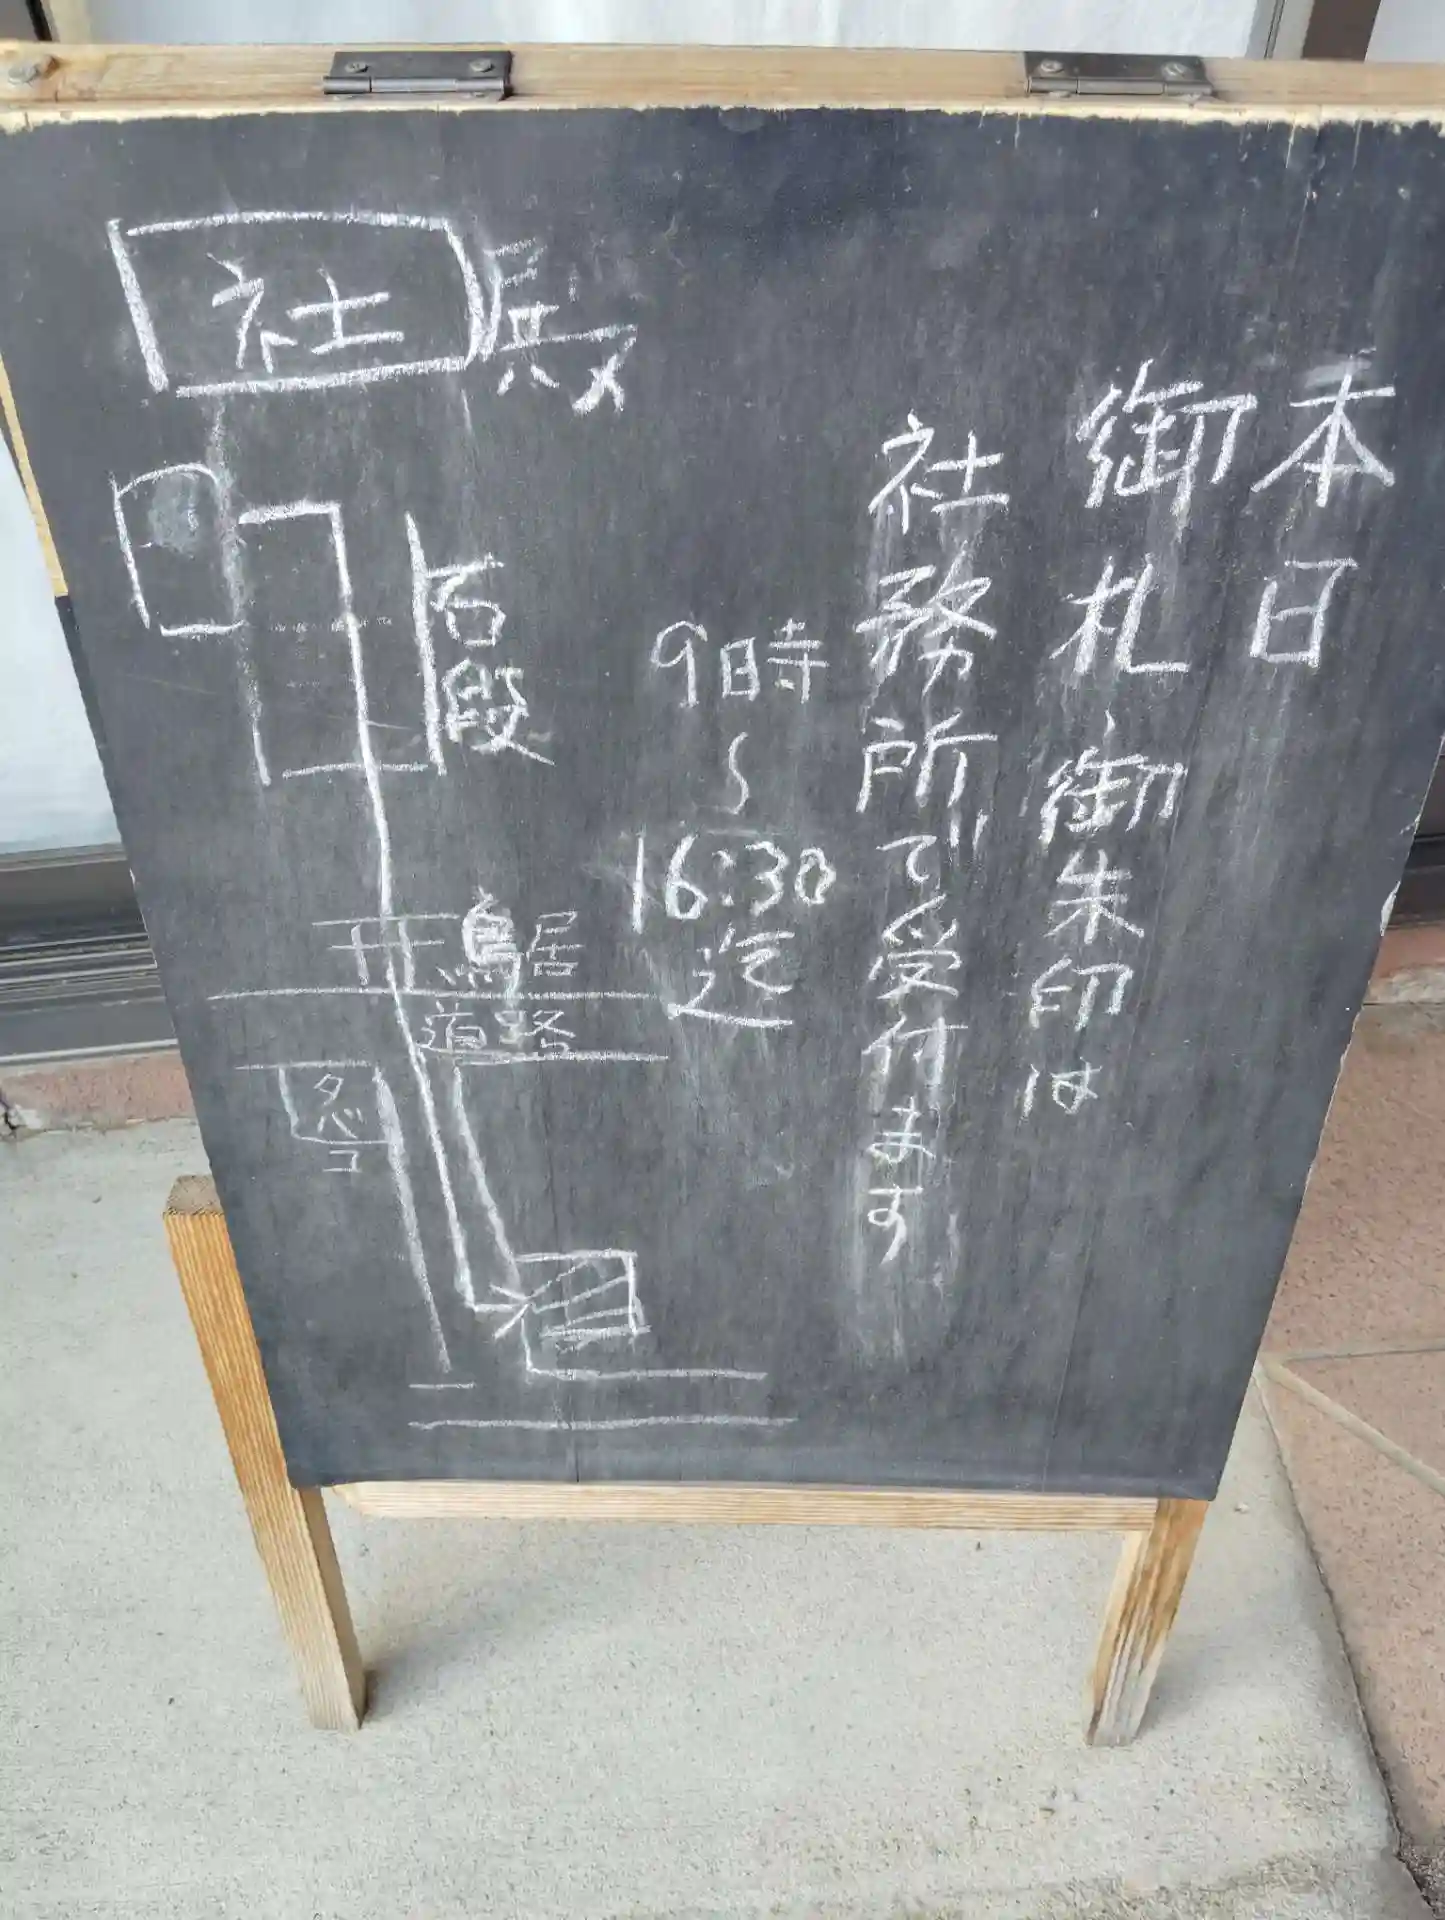 本日
御札、御朱印は
社務所で受付ます
9時
〜
16:30
迄
社殿
石段
鳥居
道路
タバコ